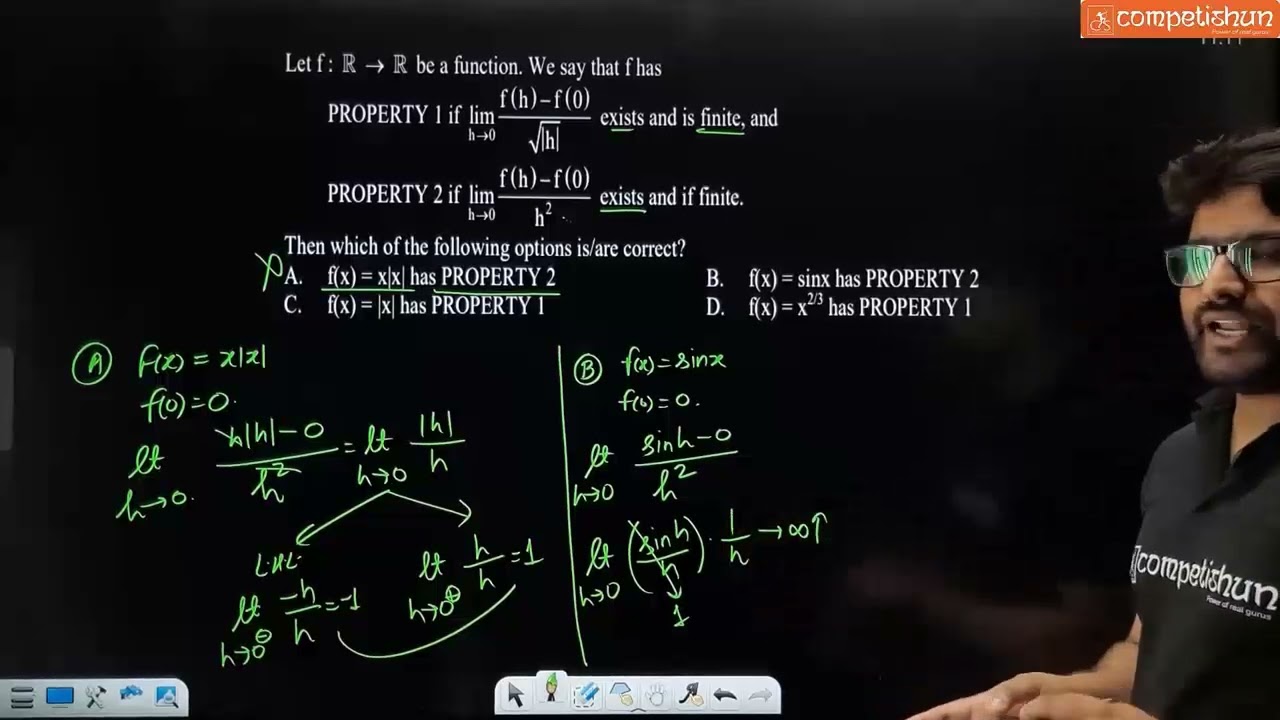 competishun
Power of real gurus
Let f : ℝ → ℝ be a function. We say that f has
PROPERTY 1 if lim h→0 (f(h)−f(0))/√|h| exists and is finite, and
PROPERTY 2 if lim h→0 (f(h)−f(0))/h² exists and if finite.
Then which of the following options is/are correct?
A. f(x) = x|x| has PROPERTY 2
B. f(x) = sinx has PROPERTY 2
C. f(x) = |x| has PROPERTY 1
D. f(x) = x^{2/3} has PROPERTY 1
Ⓐ f(x) = x|x|
f(0) = 0.
lt h→0. (h|h| − 0)/h² = lt h→0 |h|/h
L.H.L
lt h→0⊖ −h/h = −1
lt h→0⊕ h/h = 1
Ⓑ f(x) = sinx
f(0) = 0.
lt h→0 (sinh − 0)/h²
lt h→0 (sinh/h) · 1/h → ∞↑
1
competishun
Power of real gurus